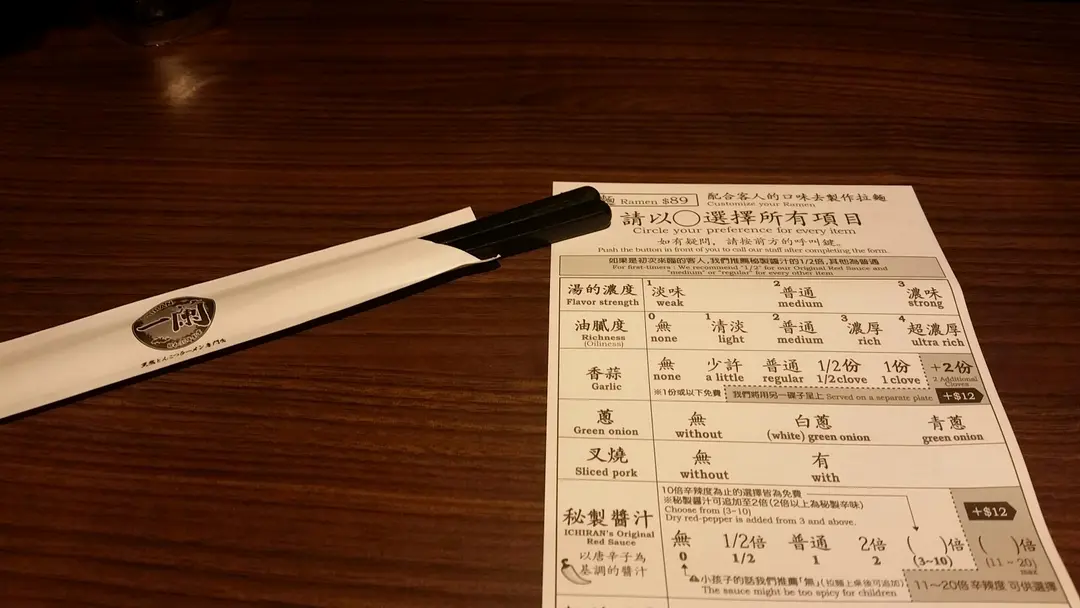 一蘭
ICHIRAN
天然とんこつラーメン専門店
麵 Ramen $89
配合客人的口味去製作拉麵
Customize your Ramen
請以〇選擇所有項目
Circle your preference for every item
如有疑問，請按前方的呼叫鍵。
Push the button in front of you to call our staff after completing the form.
如果是初次來臨的客人，我們推薦秘製醬汁的1/2倍，其他為普通
For first-timers : We recommend "1/2" for our Original Red Sauce and
"medium" or "regular" for every other item
湯的濃度 1 淡味 2 普通 3 濃味
Flavor strength weak medium strong
油膩度 0 無 1 清淡 2 普通 3 濃厚 4 超濃厚
Richness none light medium rich ultra rich
(Oiliness)
香蒜 無 少許 普通 1/2份 1份 +2份
Garlic none a little regular 1/2 clove 1 clove 2 Additional Cloves
※1份或以下免費 我們將用另一碟子呈上 Served on a separate plate +$12
蔥 無 白蔥 青蔥
Green onion without (white) green onion green onion
叉燒 無 有
Sliced pork without with
10倍辛辣度為止的選擇皆為免費
※秘製醬汁可追加至2倍(2倍以上為秘製辛味)
Choose from (3~10)
Dry red-pepper is added from 3 and above.
+$12
秘製醬汁 無 1/2倍 普通 2倍 ( )倍 ( )倍
ICHIRAN's Original
Red Sauce
0 1/2 1 2 (3~10) (11~20)
max
以唐辛子為
基調的醬汁
小孩子的話我們推薦「無」(拉麵上桌後可追加)
The sauce might be too spicy for children
11~20倍 辛辣度 可供選擇